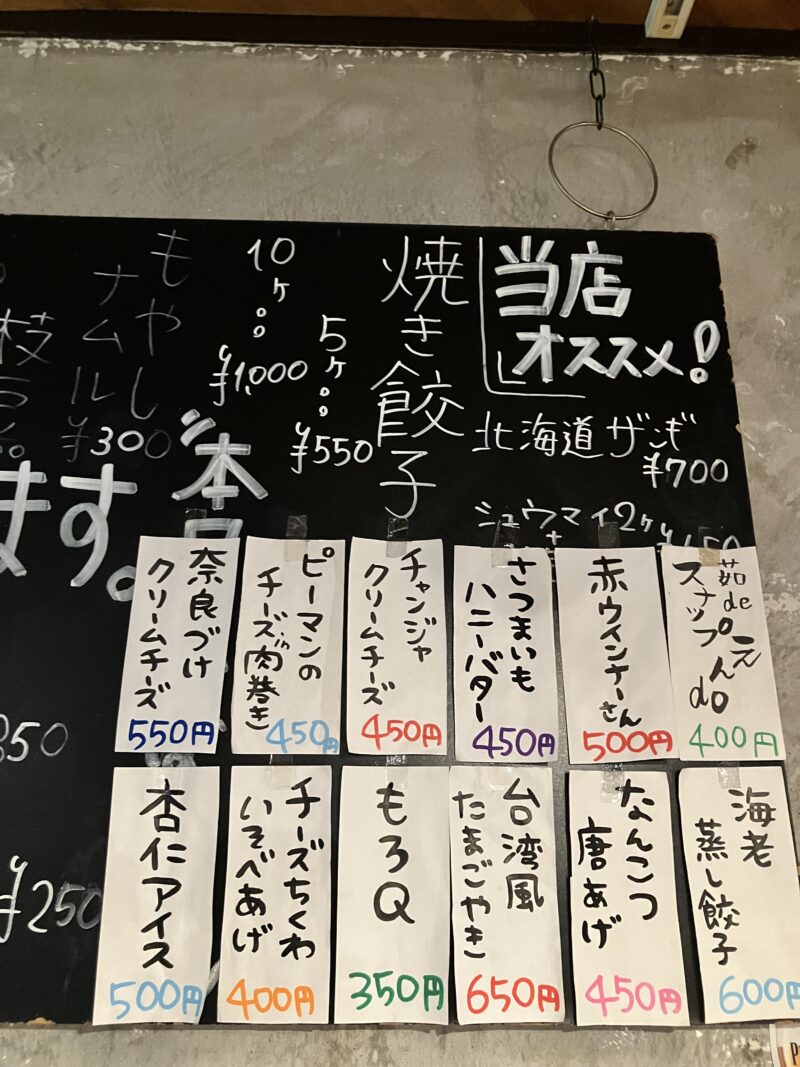 当店
オススメ!
北海道ザンギ
¥700
シュウマイ2ケ
焼き餃子
5ケ。。
¥550
10ケ。。
¥1,000
もやし
ナムル
¥300
ます。
350
¥250
茹de
スナップえんdo
400円
赤ウインナーさん
500円
さつまいも
ハニーバター
450円
チャンジャ
クリームチーズ
450円
ピーマンの
チーズin肉巻き
450円
奈良づけ
クリームチーズ
550円
海老
蒸し餃子
600円
なんこつ
唐あげ
450円
台湾風
たまごやき
650円
もろQ
350円
チーズちくわ
いそべあげ
400円
杏仁アイス
500円